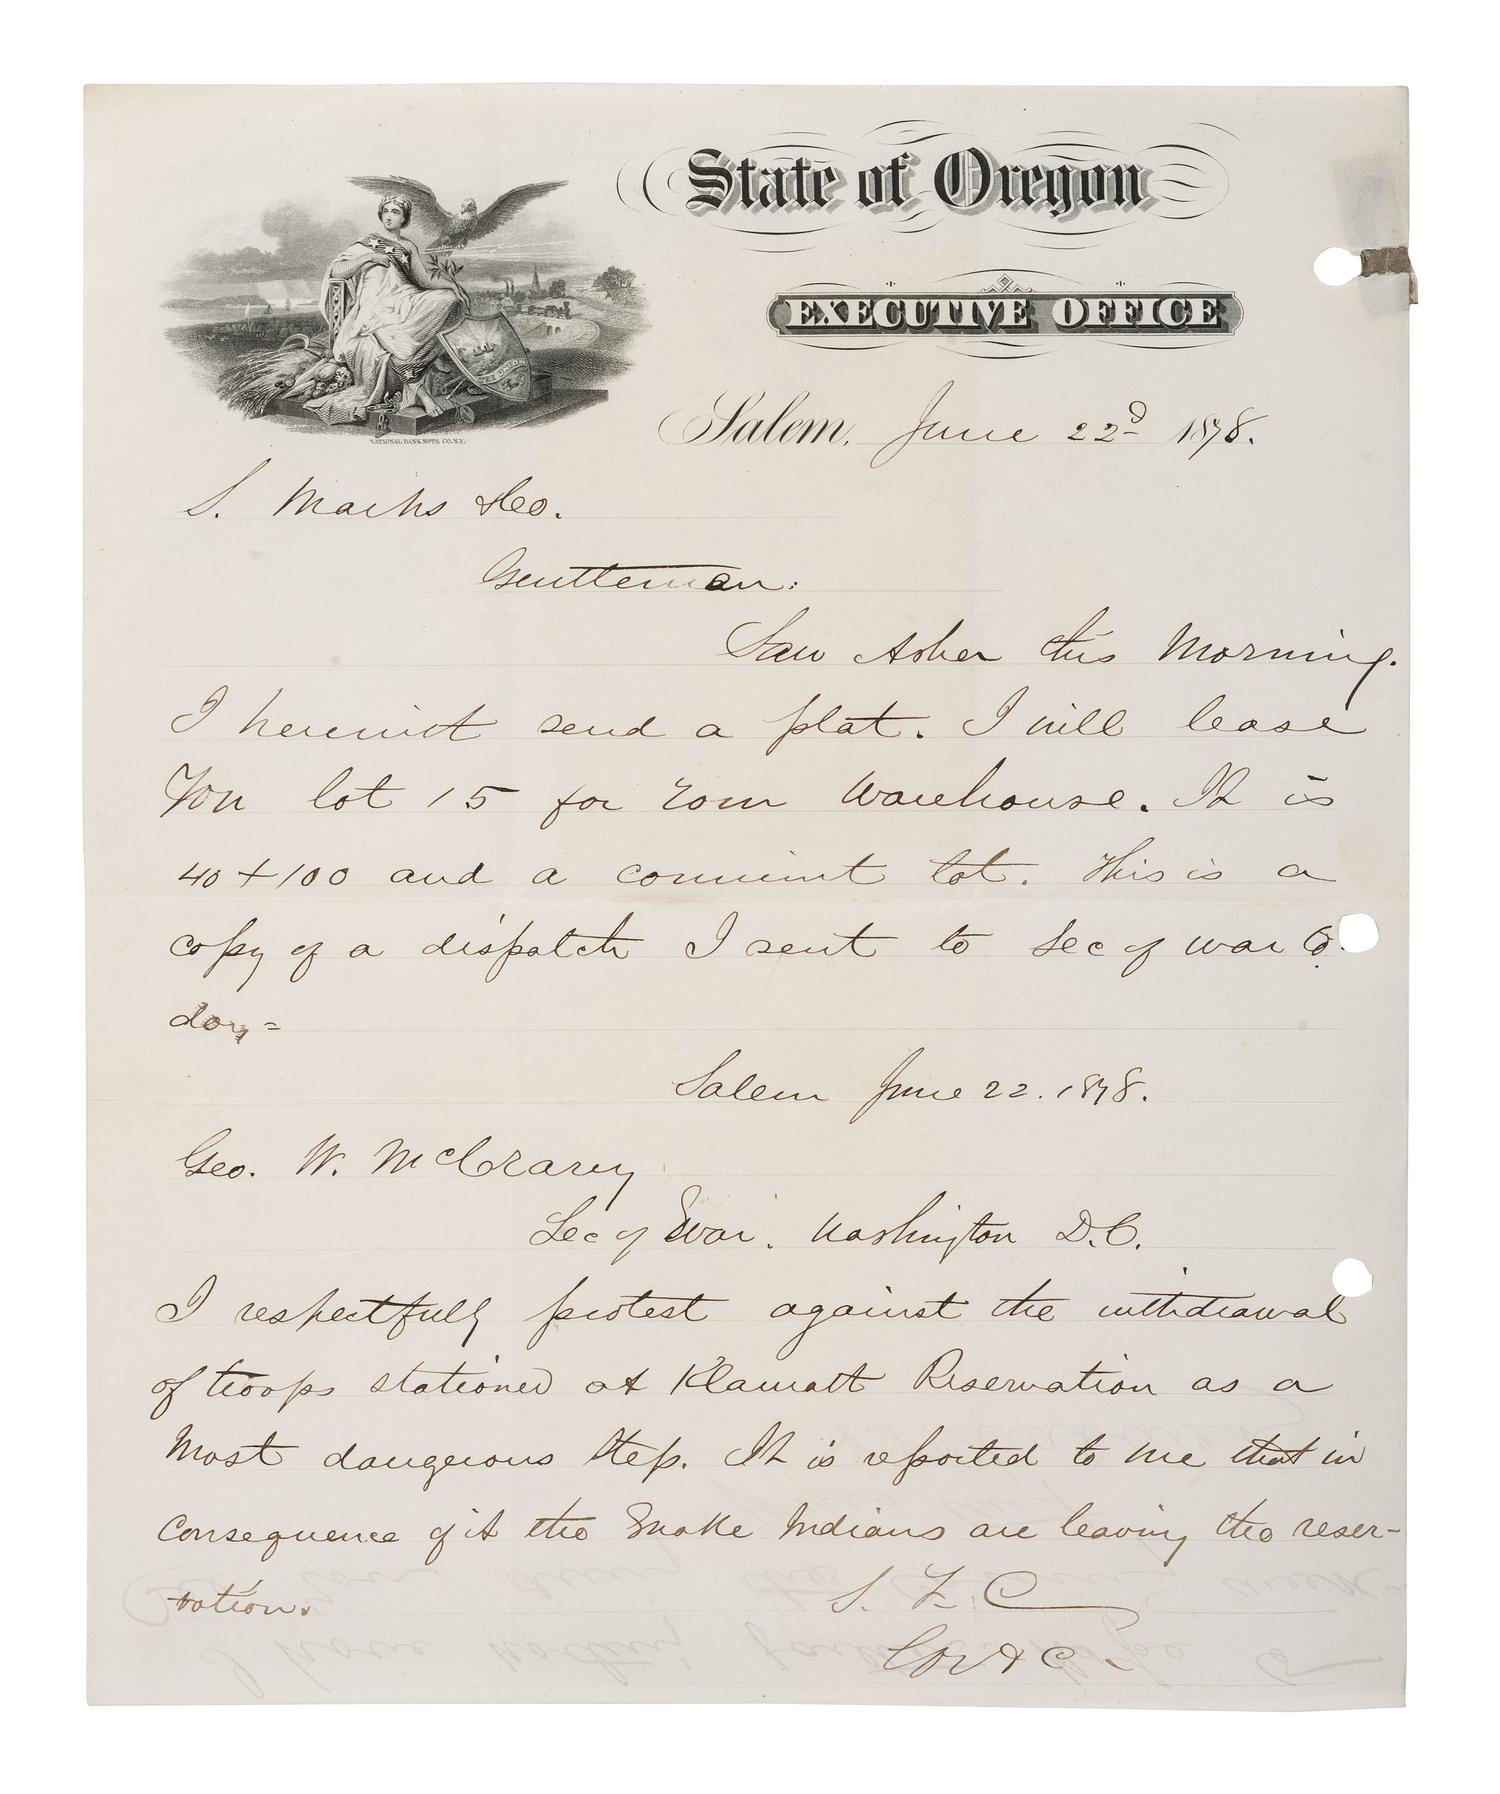 State of Oregon
EXECUTIVE OFFICE
NATIONAL BANK NOTE CO. N.Y.
Salem, June 22d 1878.
S. Marks & Co.
Gentlemen:
Saw Asher this Morning.
I herewith send a plat. I will lease
You lot 15 for your Warehouse. It is
40 + 100 and a convenient lot. This is a
copy of a dispatch I sent to Sec of War to
day =
Salem June 22. 1878.
Geo. W. McCrarey
Sec of War. Washington D.C.
I respectfully protest against the withdrawal
of troops stationed at Klamath Reservation as a
Most dangerous Step. It is reported to me that in
Consequence of it the Snake Indians are leaving the reser-
vation.
S. F. C
Gov &c.